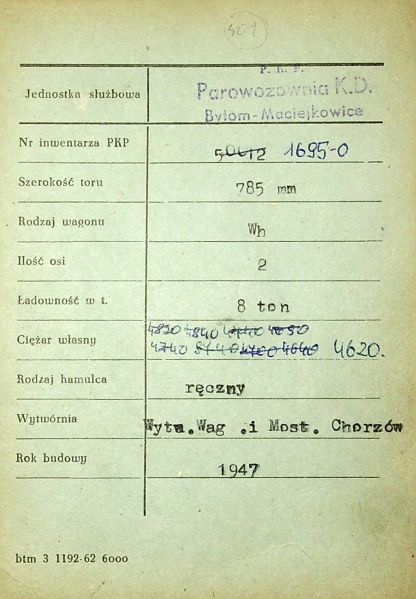 501
P. K. P.
Jednostka służbowa Parowozownia K.D.
Bytom-Maciejkowice
Nr inwentarza PKP 50612 1695-0
Szerokość toru 785 mm
Rodzaj wagonu Wh
Ilość osi 2
Ładowność w t. 8 ton
4820 4840 4740 4650
Ciężar własny 4740 5140 4700 4640 4620.
Rodzaj hamulca ręczny
Wytwórnia Wytw.Wag .i Most. Chorzów
Rok budowy 1947
btm 3 1192-62 6000